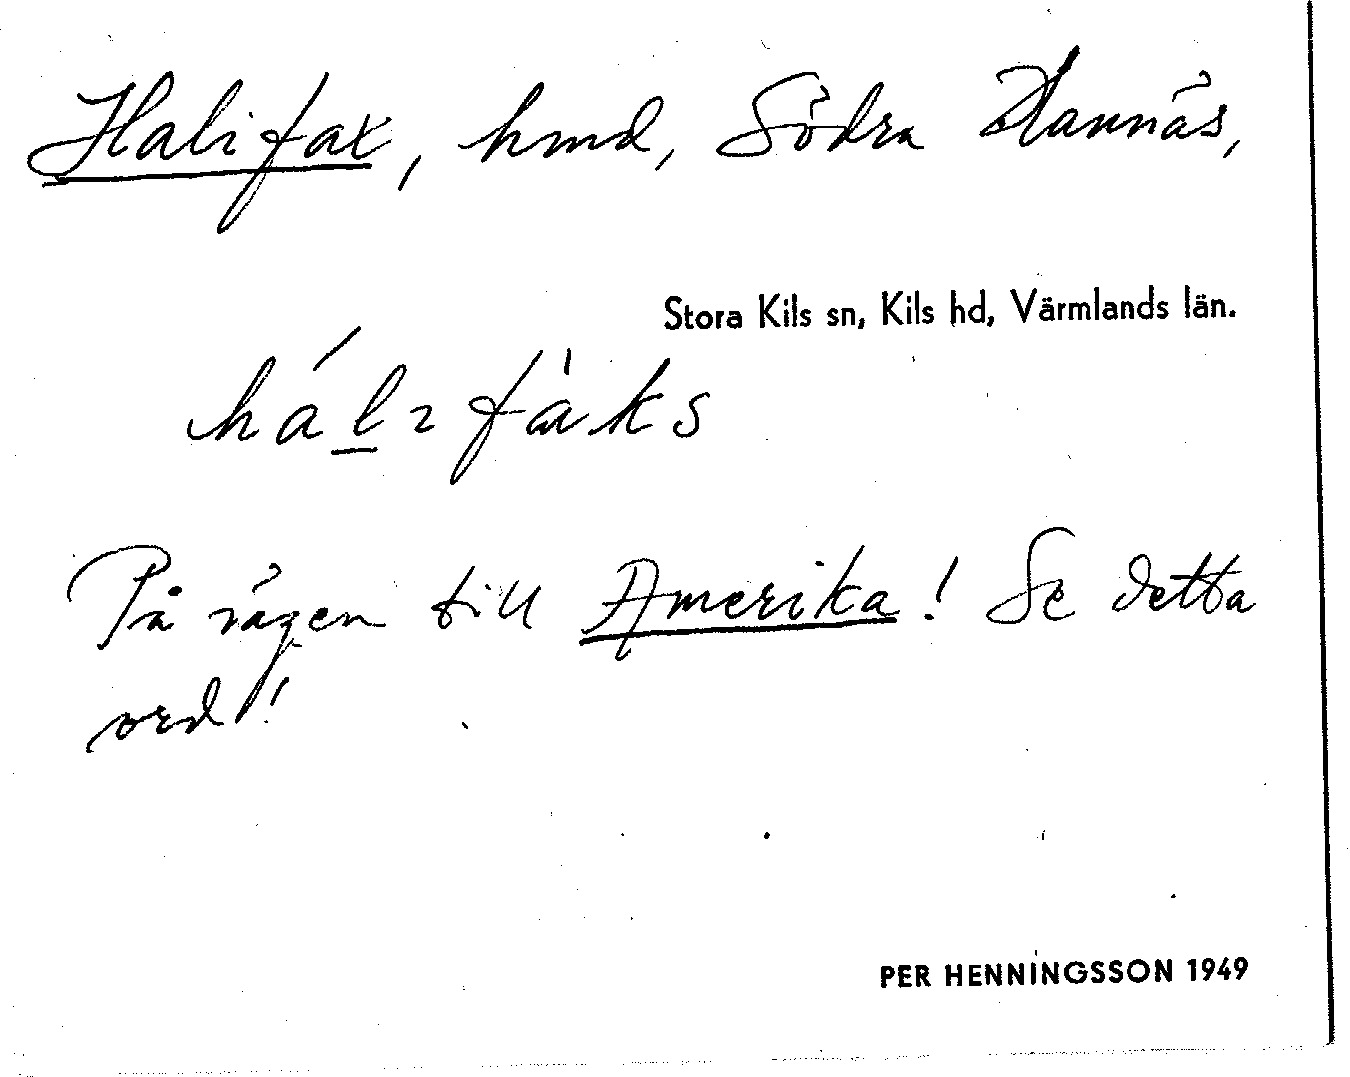 Halifax, hmd, Södra Hannäs,
Stora Kils sn, Kils hd, Värmlands län.
hálɩfàks
På vägen till Amerika! Se detta
ord!
PER HENNINGSSON 1949